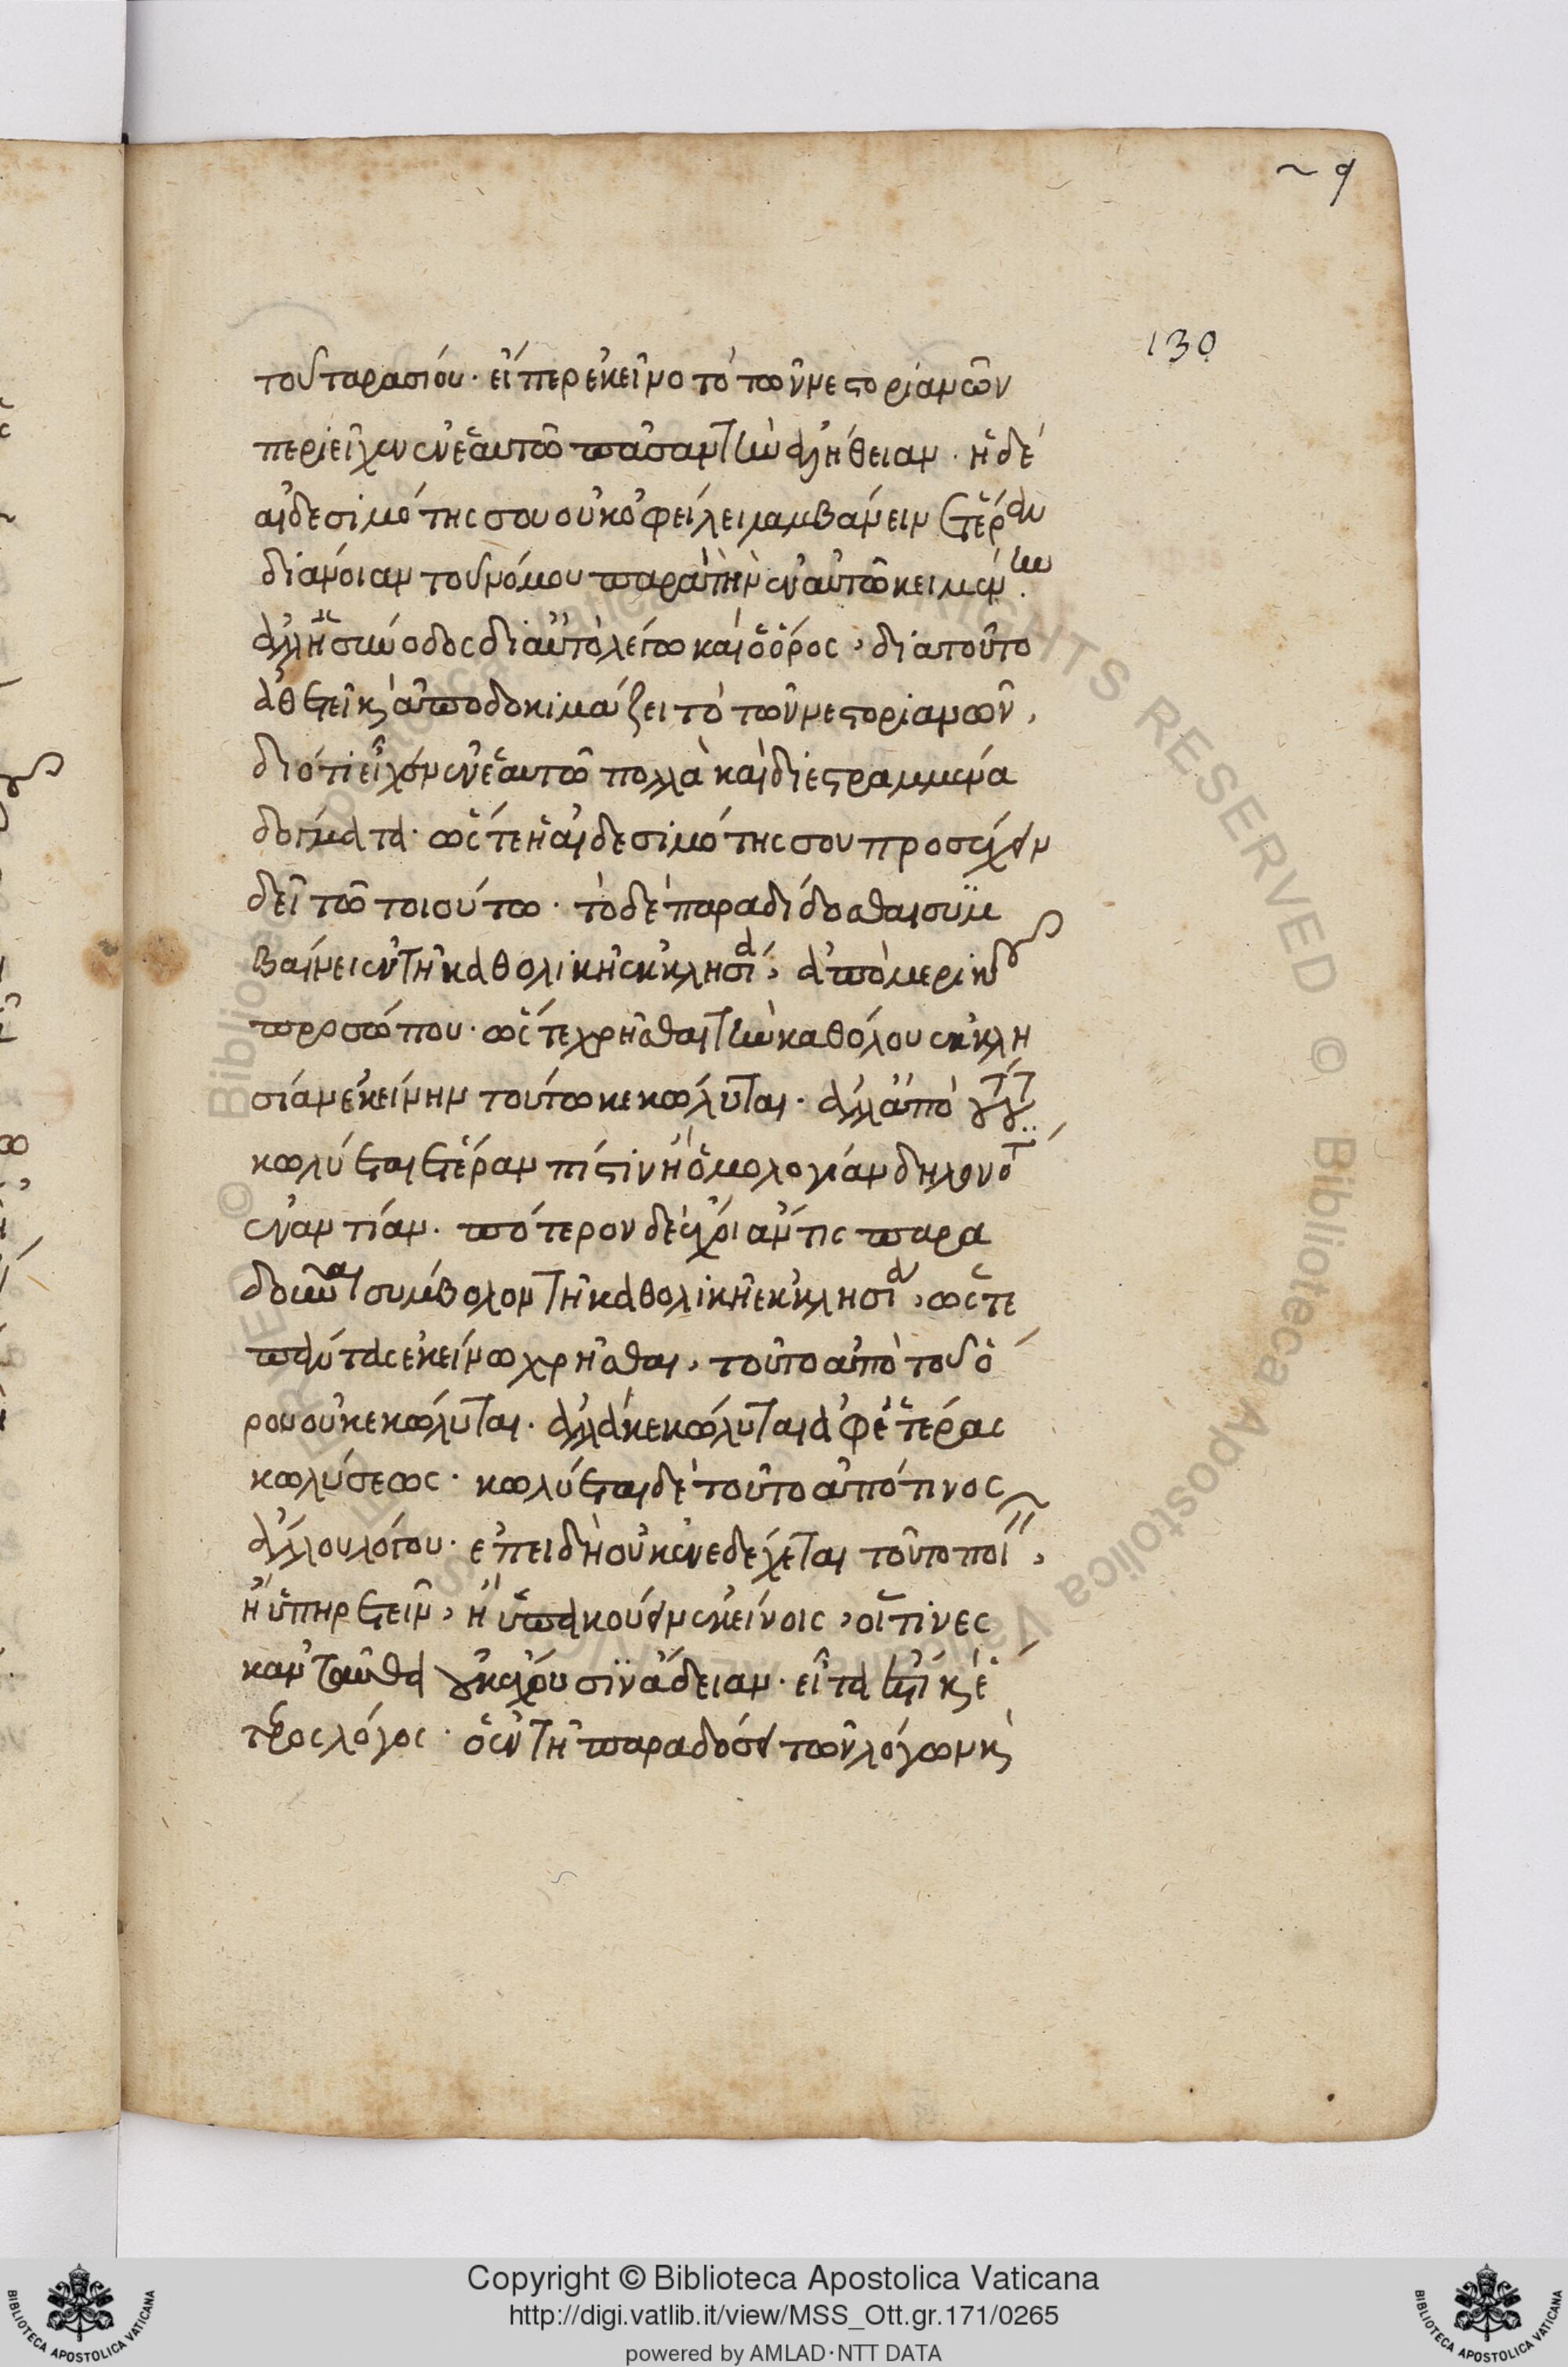 ~ 9
130
τοῦ ταρασίου· εἴπερ ἐκεῖνο τὸ τῶν νεστοριανῶν
περιεῖχεν ἐν ἑαυτῶ πᾶσαν τὴν ἀλήθειαν· ἡ δὲ
αἰδεσιμότης σου οὐκ ὀφείλει λαμβάνειν ἑτέραν
διάνοιαν τοῦ νόμου παρὰ τὴν ἐν αὐτῶ κειμένην·
ἀλλ' ἡ σύνοδος δι' αὐτὸ λέγω καὶ ὁ ὅρος, διὰ τοῦτο
ἀθετεῖ κ ἀποδοκιμάζει τὸ τῶν νεστοριανῶν,
διότι εἶχεν ἐν ἑαυτῶ πολλὰ καὶ διεστραμμένα
δόγματα· ὥστε ἡ αἰδεσιμότης σου προσέχειν
δεῖ τῶ τοιούτω· τὸ δὲ παραδίδοσθαι συμ
βαίνει ἐν τῆ καθολικῆ ἐκκλησία, ἀπὸ μερικοῦ
προσώπου· ὥστε χρῆσθαι τὴν καθόλου ἐκκλη
σίαν ἐκείνην τούτω κεκώλυται· ἀλλ' ἀπὸ
κωλύεται ἑτέραν πίστιν ἢ ὁμολογίαν δηλονότι
ἐναντίαν· πότερον δὲ ἔχοι ἄν τις παρα
δοῦναι σύμβολον τῆ καθολικῆ ἐκκλησία, ὥστε
πάντας ἐκείνω χρῆσθαι, τοῦτο ἀπὸ τοῦ ὅ
ρου οὐ κεκώλυται· ἀλλὰ κεκώλυται ἀφ' ἑτέρας
κωλύσεως· κωλύεται δὲ τοῦτο ἀπό τινος
ἄλλου λόγου· ἐπειδὴ οὐκ ἐνεδέχεται τοῦτο ποι,
ἢ ὑπηρετεῖν, ἢ ὑπακούειν ἐκείνοις, οἵτινες
κἀνταῦθα οὐκ ἔχουσιν ἄδειαν· εἶτα ἐστὶ κ ἕ
τερος λόγος· ὃς ἐν τῆ παραδόσει τῶν λόγων κ
Copyright © Biblioteca Apostolica Vaticana
http://digi.vatlib.it/view/MSS_Ott.gr.171/0265
powered by AMLAD·NTT DATA
BIBLIOTECA APOSTOLICA VATICANA
BIBLIOTECA APOSTOLICA VATICANA